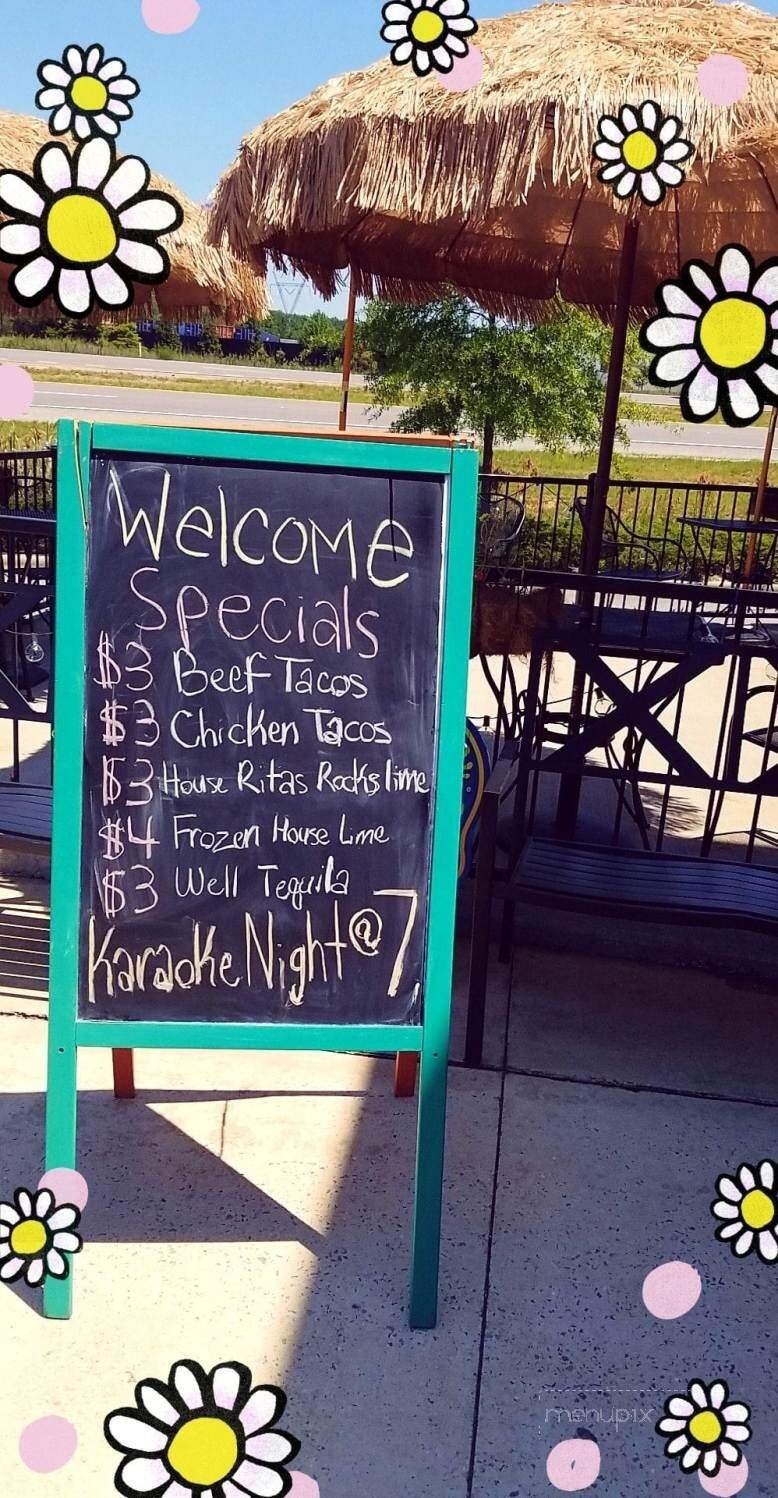 Welcome
Specials
$3 Beef Tacos
$3 Chicken Tacos
$3 House Ritas Rocks lime
$4 Frozen House Lime
$3 Well Tequila
Karaoke Night @ 7
menupix